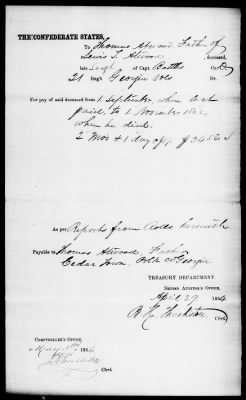 THE CONFEDERATE STATES,
To Thomas Atwood Father of
Lewis L. Atwood deceased,
late Sergt of Capt. Battle Co.
21 Reg't Georgia Vols Dr.
For pay of said deceased from 1 September, when last
paid, to 1 November 186
when he died.
2 Mos + 1 day @ $
As per Reports from Rolls herewith
Payable to Thomas Atwood Father
Cedar Town, Polk Co Georgia
TREASURY DEPARTMENT
SECOND AUDITOR'S OFFICE,
April 29 1864
Clerk.
COMPTROLLER'S OFFICE,
May 186
Clerk.